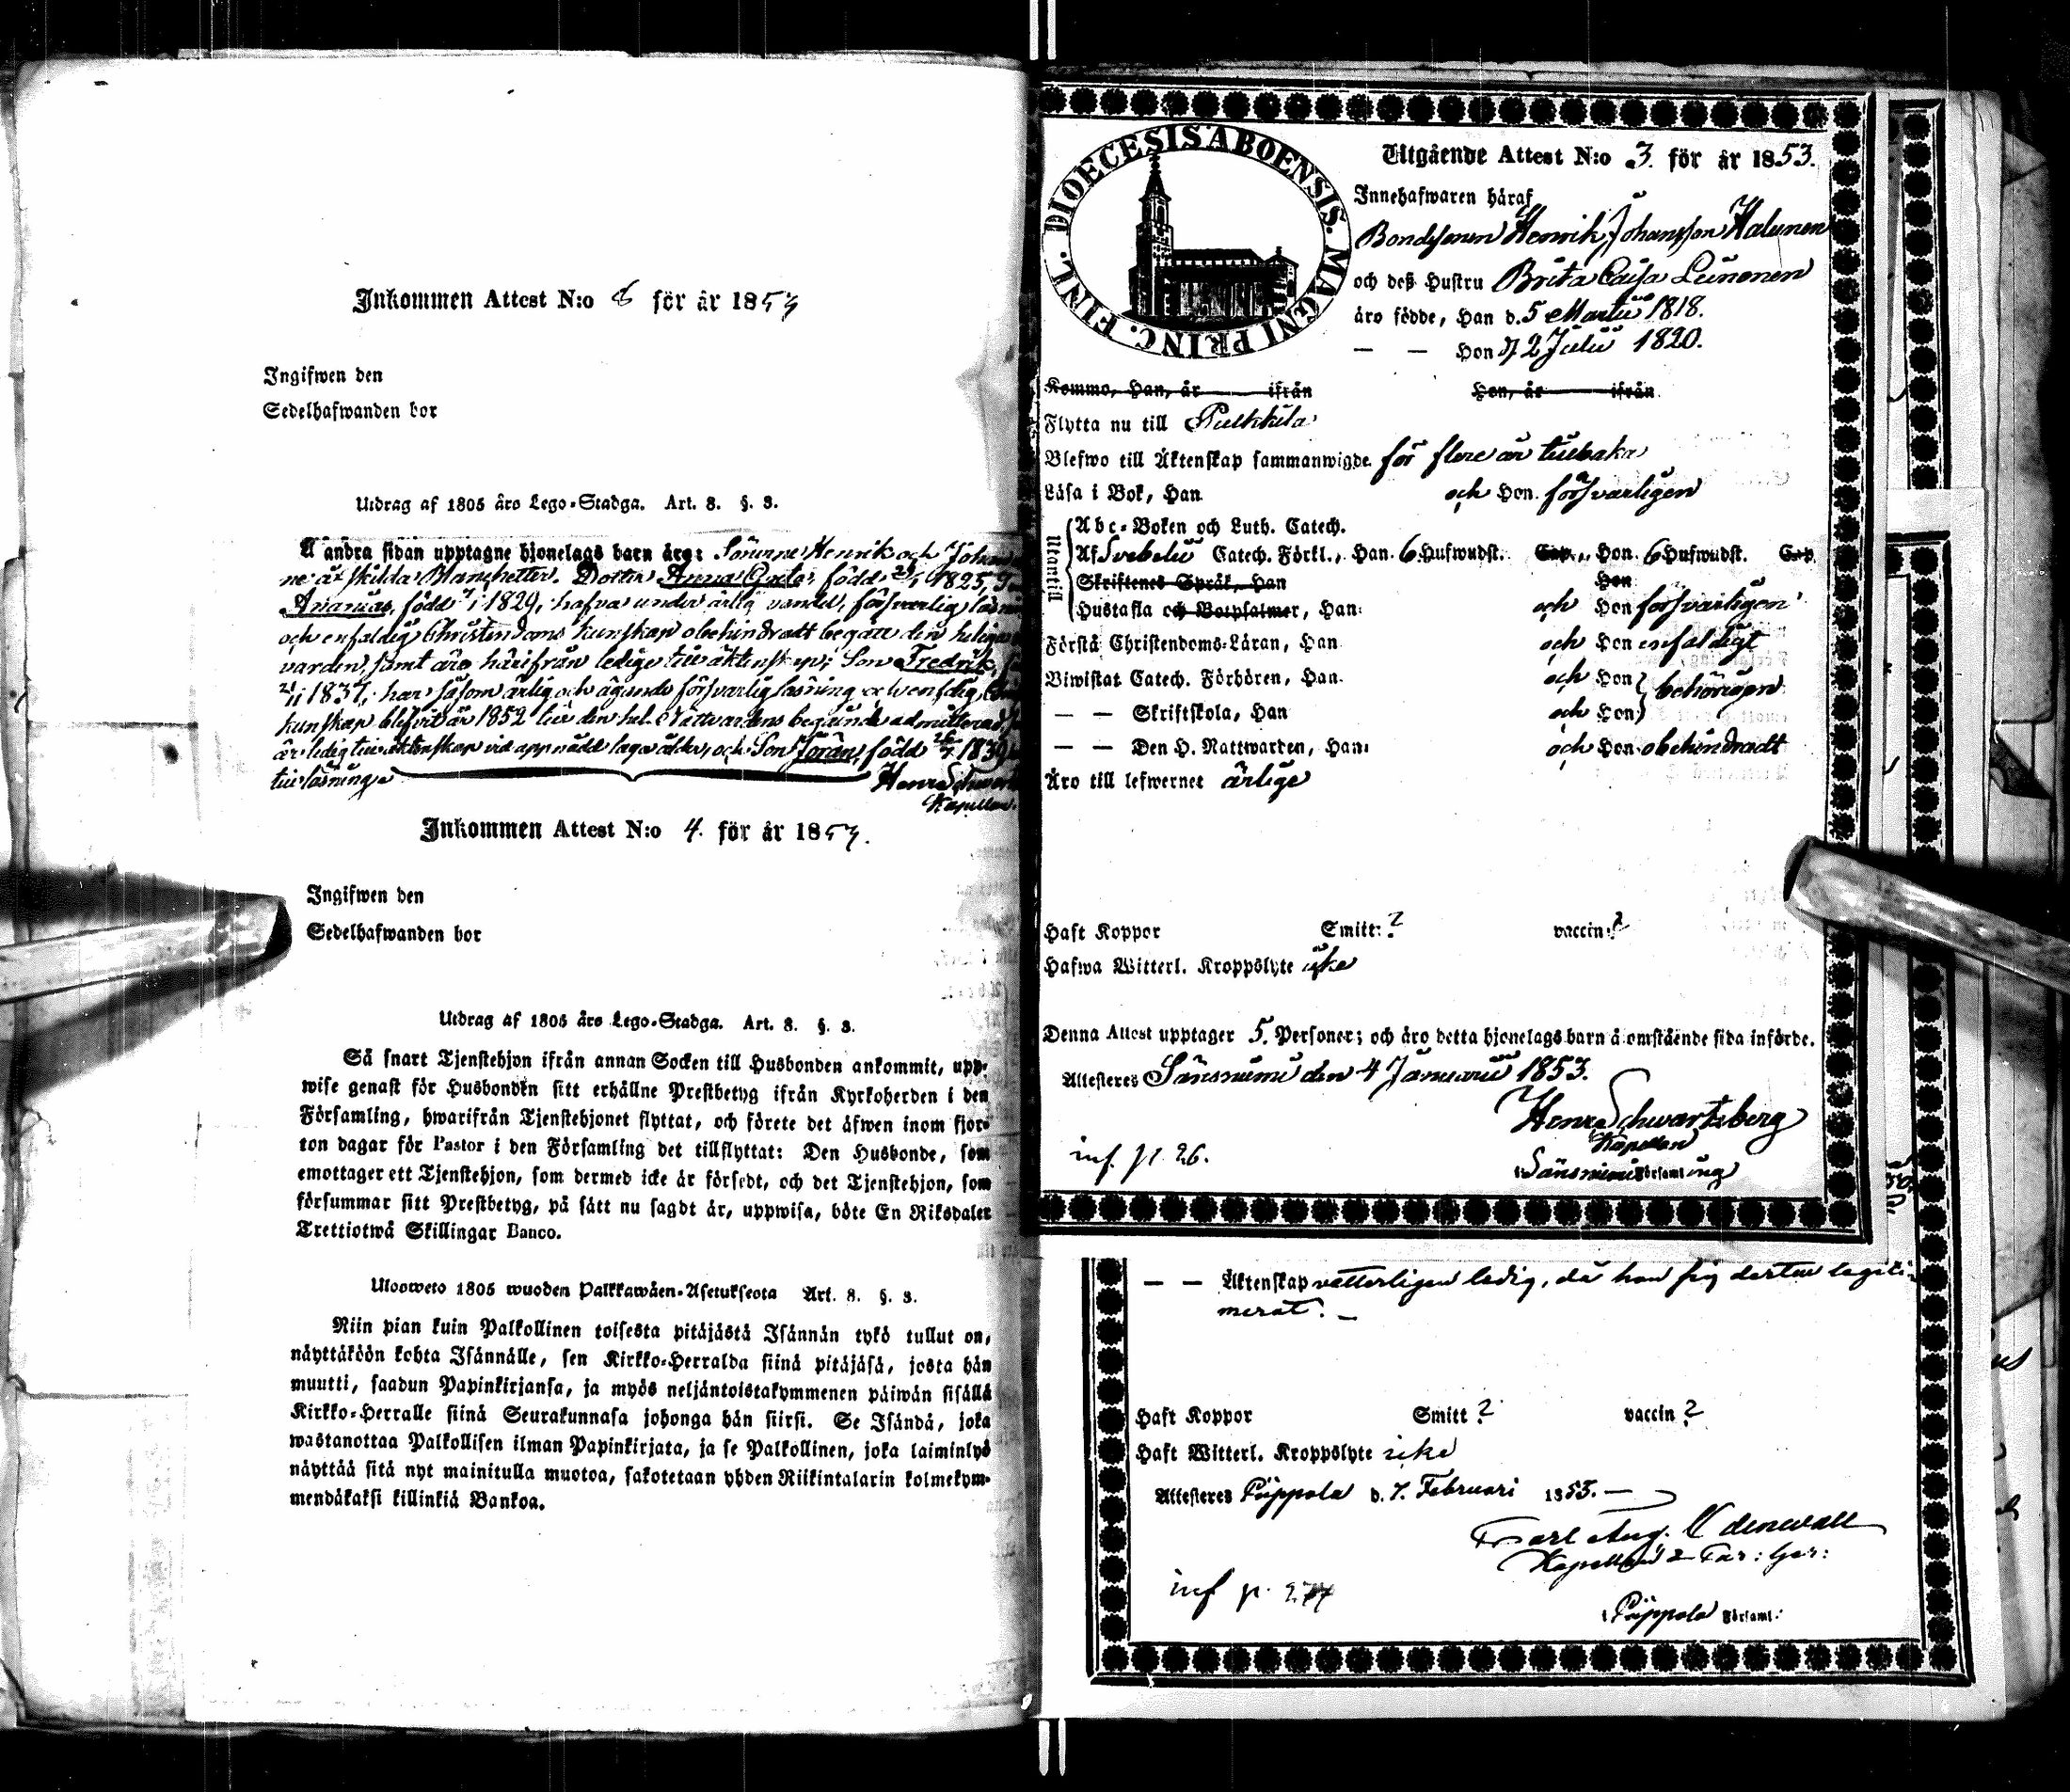 Inkommen Attest N:o 6 för år 1853
Ingifwen den
Sedelhafwanden bor
Utdrag af 1805 års Lego-Stadga. Art. 8. §. 3.
Å andra sidan upptagne hjonelags barn äro: Sönerne Henrik och Johan
ne år skilda Blanchetter. Dotter Anna Greta, född 1825,
Ananias, född i 1829, hafva under ärlig vandel, försvarlig
och enfaldig Christendoms kunskap obehindradt begått den heliga
varden, samt äro härifrån ledige till äktenskap; Son Fredrik,
1837, har såsom ärlig och ägande försvarlig läsning och enfaldig
kunskap blifvit år 1852 till den hel. Nattvardens begående admitterad
är ledig till äktenskap vid uppnådd laga ålder, och Son Jöran, född 1839
till läsning
Henr Schwartz
Kapellan.
Inkommen Attest N:o 4. för år 1853.
Ingifwen den
Sedelhafwanden bor
Utdrag af 1805 års Lego-Stadga. Art. 8. §. 3.
Så snart Tjenstehjon ifrån annan Socken till Husbonden ankommit, upp-
wise genast för Husbonden sitt erhållne Prestbetyg ifrån Kyrkoherden i den
Församling, hwarifrån Tjenstehjonet flyttat, och förete det äfwen inom fjor-
ton dagar för Pastor i den Församling det tillflyttat: Den Husbonde, som
emottager ett Tjenstehjon, som dermed icke är försedt, och det Tjenstehjon, som
försummar sitt Prestbetyg, på sätt nu sagdt är, uppwisa, böte En Riksdaler
Trettiotwå Skillingar Banco.
Ulosweto 1805 wuoden Palkkawäen-Asetuksesta Art. 8. §. 3.
Niin pian kuin Palkollinen toisesta pitäjästä Isännän tykö tullut on,
näyttäköön kohta Isännälle, sen Kirkko-Herralda siinä pitäjäsä, josta hän
muutti, saadun Papinkirjansa, ja myös neljäntoistakymmenen päiwän sisällä
Kirkko-Herralle siinä Seurakunnasa johonga hän siirsi. Se Isändä, joka
wastanottaa Palkollisen ilman Papinkirjata, ja se Palkollinen, joka laiminlyö
näyttää sitä nyt mainitulla muotoa, sakotetaan yhden Riikintalarin kolmekym-
mendäkaksi killinkiä Bankoa.
DIOECESIS ABOENSIS. MAGNI PRINC. FINL.
Utgående Attest N:o 3. för år 1853.
Innehafwaren håraf
Bondesonen Henrik Johansson Halunen
och deß Hustru Brita Caisa Leinonen
äro födde, Han d. 5 Martii 1818.
— — Hon d 2 Julii 1820.
Komme, Han, år ifrån Hon, år ifrån
Flytta nu till Pulkkila
Blefwo till Äktenskap sammanwigde för flere år tillbaka
Läsa i Bok, Han och Hon försvarligen
Utantill
Abc-Boken och Luth. Catech.
Af Svebelii Catech. Förkl., Han 6 Hufwudst. Cap., Hon 6 Hufwudst. Cap
Skriftenes Språk, Han Hon
Hustafla och Botpsalmer, Han och Hon försvarligen
Förstå Christendoms-Läran, Han och Hon enfaldigt
Biwistat Catech. Förhören, Han och Hon behörigen
— — Skriftskola, Han och Hon
— — Den H. Nattwarden, Han och Hon obehindradt
Äro till lefwernet ärlige
Haft Koppor Smitt: ? vaccin: ?
Hafwa Witterl. Kroppslyte icke
Denna Attest upptager 5. Personer; och äro detta hjonelags barn å omstående sida införde.
Attesteres Säräisniemi den 4 Januarii 1853.
Henr Schwartzberg
Kapellan
inf. p. 26.
— — Äktenskap vetterligen ledig, då hon sig dertill legiti-
merat. —
Haft Koppor Smitt ? vaccin ?
Haft Witterl. Kroppslyte icke
Attesteres Piippola d. 7. Februari 1853. —
Carl Aug. Odenwall
inf p. 274
i Piippola Församl: